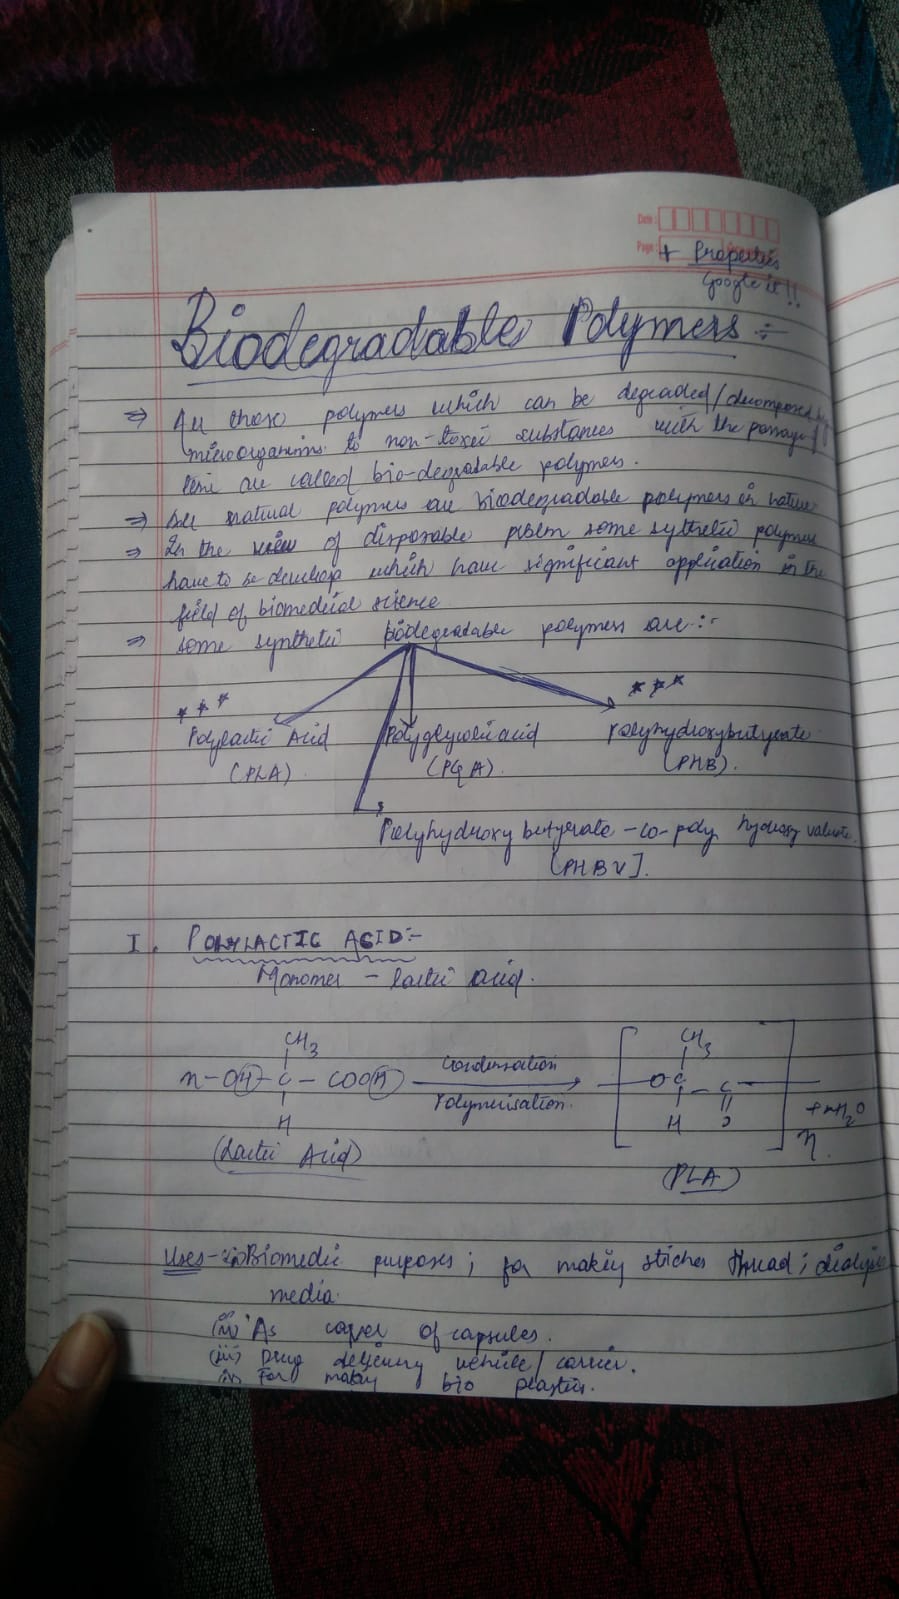 Date:
Page:
+ Properties
Google it!!
Biodegradable Polymers :-
⇒ All those polymers which can be degraded/decomposed by
microorganisms to non-toxic substances with the passage of
time are called bio-degradable polymers.
⇒ All natural polymers are biodegradable polymers in nature.
⇒ In the view of disposable some sythetic polymers
have to be develop which have significant application in the
field of biomedical science
⇒ some synthetic biodegradable polymers are :-
* * *
* * *
Polylactic Acid Polyglycolic acid Polyhydroxybutyrate
(PLA). (PGA). (PHB).
Polyhydroxy butyrate - co - poly hydroxy valerate.
[PHBV].
I. POLYLACTIC ACID:-
Monomer - lactic acid.
CH3 CH3
n-OH-C-COOH Condensation O-C-C
Polymerisation.
H H O + nH2O
n.
(Lactic Acid) (PLA)
Uses - (i) Biomedic purposes; for making stiches thread; dialysis
media.
(ii) As caper of capsules.
(iii) Drug delivery vehicle/carrier.
(iv) For making bio plastics.